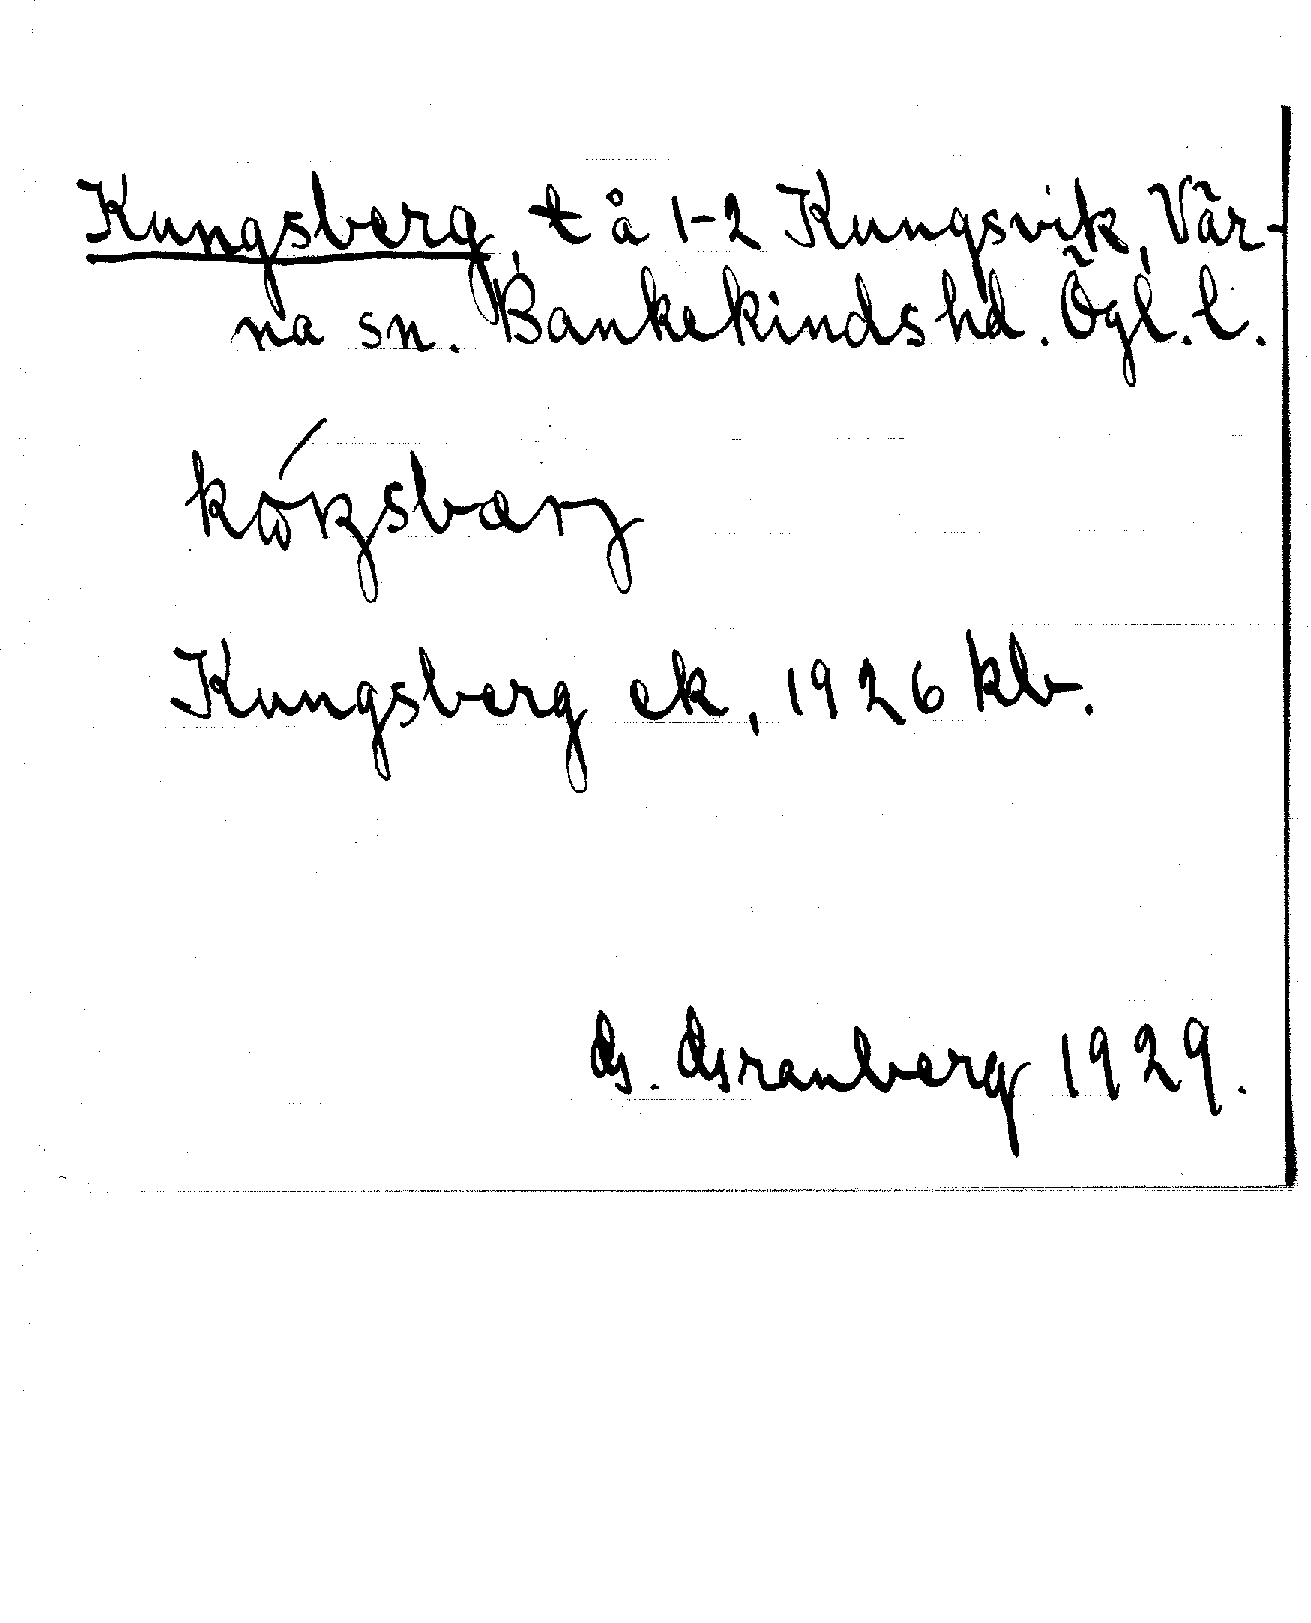 Kungsberg, t å 1-2 Kungsvik, Vär-
na sn. Bankekinds hd. Ögl. l.
Kungsberg ek, 1926 kb.
G. Granberg 1929.